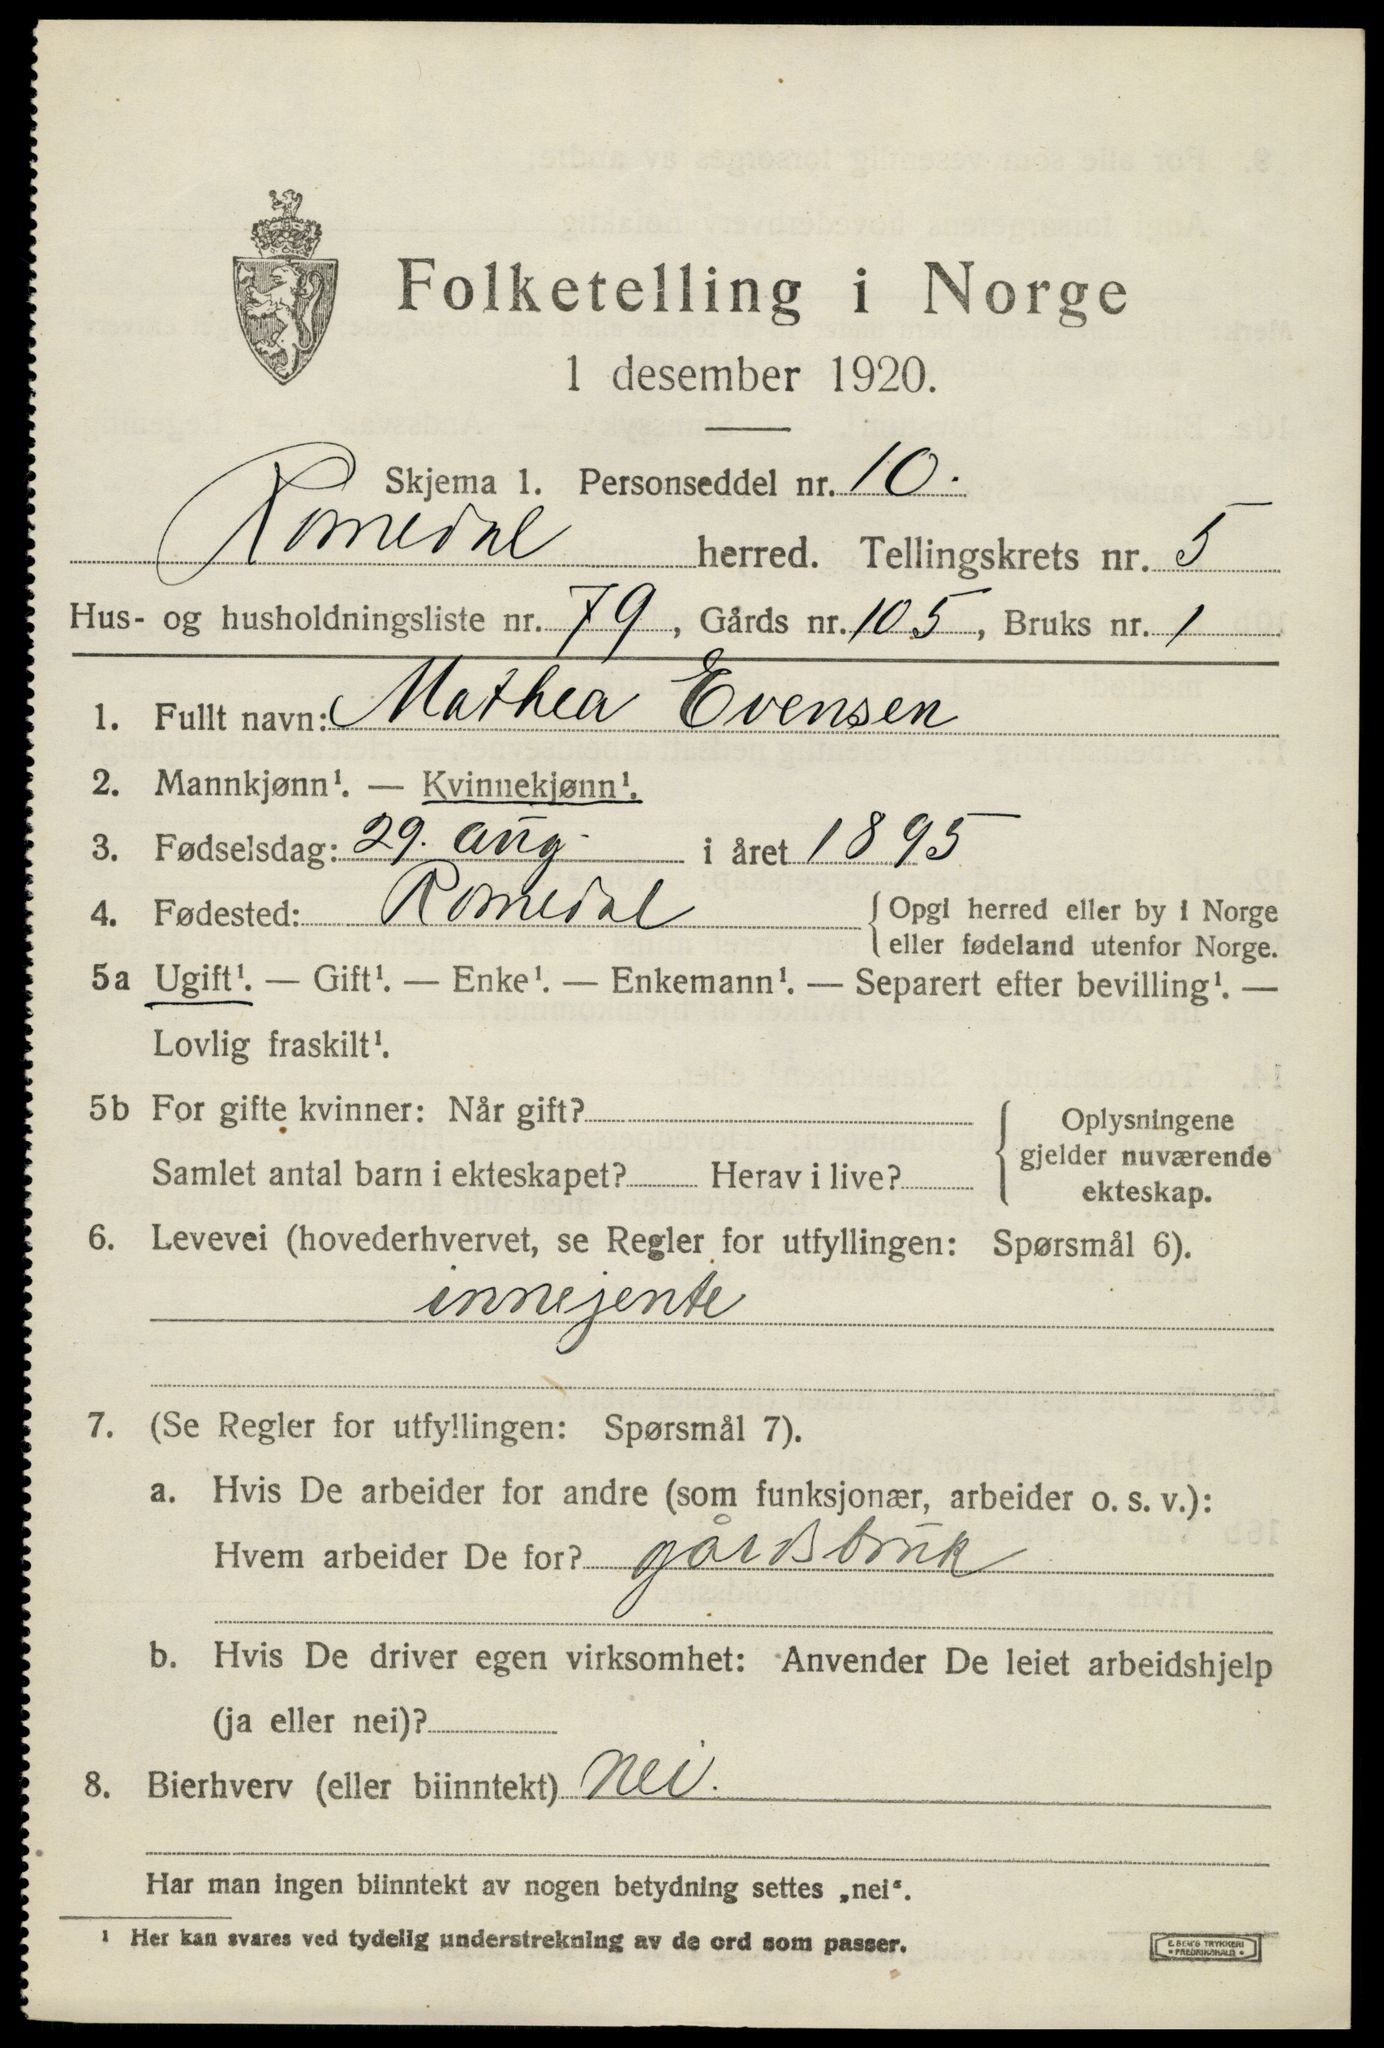 Folketelling i Norge
1 desember 1920.
Skjema 1. Personseddel nr. 10.
Romedal herred. Tellingskrets nr. 5
Hus- og husholdningsliste nr. 79, Gårds nr. 105, Bruks nr. 1
1. Fullt navn: Mathea Evensen
2. Mannkjønn¹. — Kvinnekjønn¹.
3. Fødselsdag: 29. aug. i året 1895
4. Fødested: Romedal {Opgi herred eller by i Norge
eller fødeland utenfor Norge.
5a Ugift¹. — Gift¹. — Enke¹. — Enkemann¹. — Separert efter bevilling¹. —
Lovlig fraskilt¹.
5b For gifte kvinner: Når gift?
Samlet antal barn i ekteskapet? Herav i live?
Oplysningene
gjelder nuværende
ekteskap.
6. Levevei (hovederhvervet, se Regler for utfyllingen: Spørsmål 6).
innejente
7. (Se Regler for utfyllingen: Spørsmål 7).
a. Hvis De arbeider for andre (som funksjonær, arbeider o. s. v.):
Hvem arbeider De for? gårdsbruk
b. Hvis De driver egen virksomhet: Anvender De leiet arbeidshjelp
(ja eller nei)?
8. Bierhverv (eller biinntekt) nei.
Har man ingen biinntekt av nogen betydning settes „nei“.
¹ Her kan svares ved tydelig understrekning av de ord som passer.
E. SEM'S TRYKKERI
• FREDRIKSHALD •